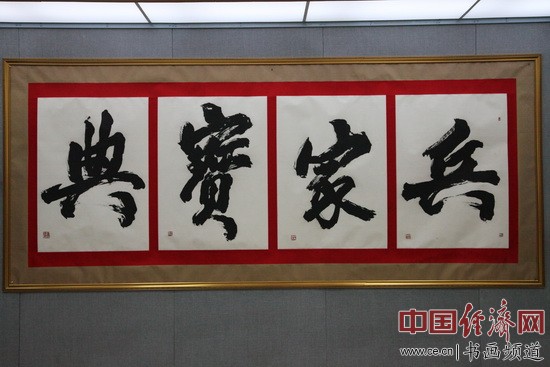 兵家寶典
中国经济网
www.ce.cn|书画频道